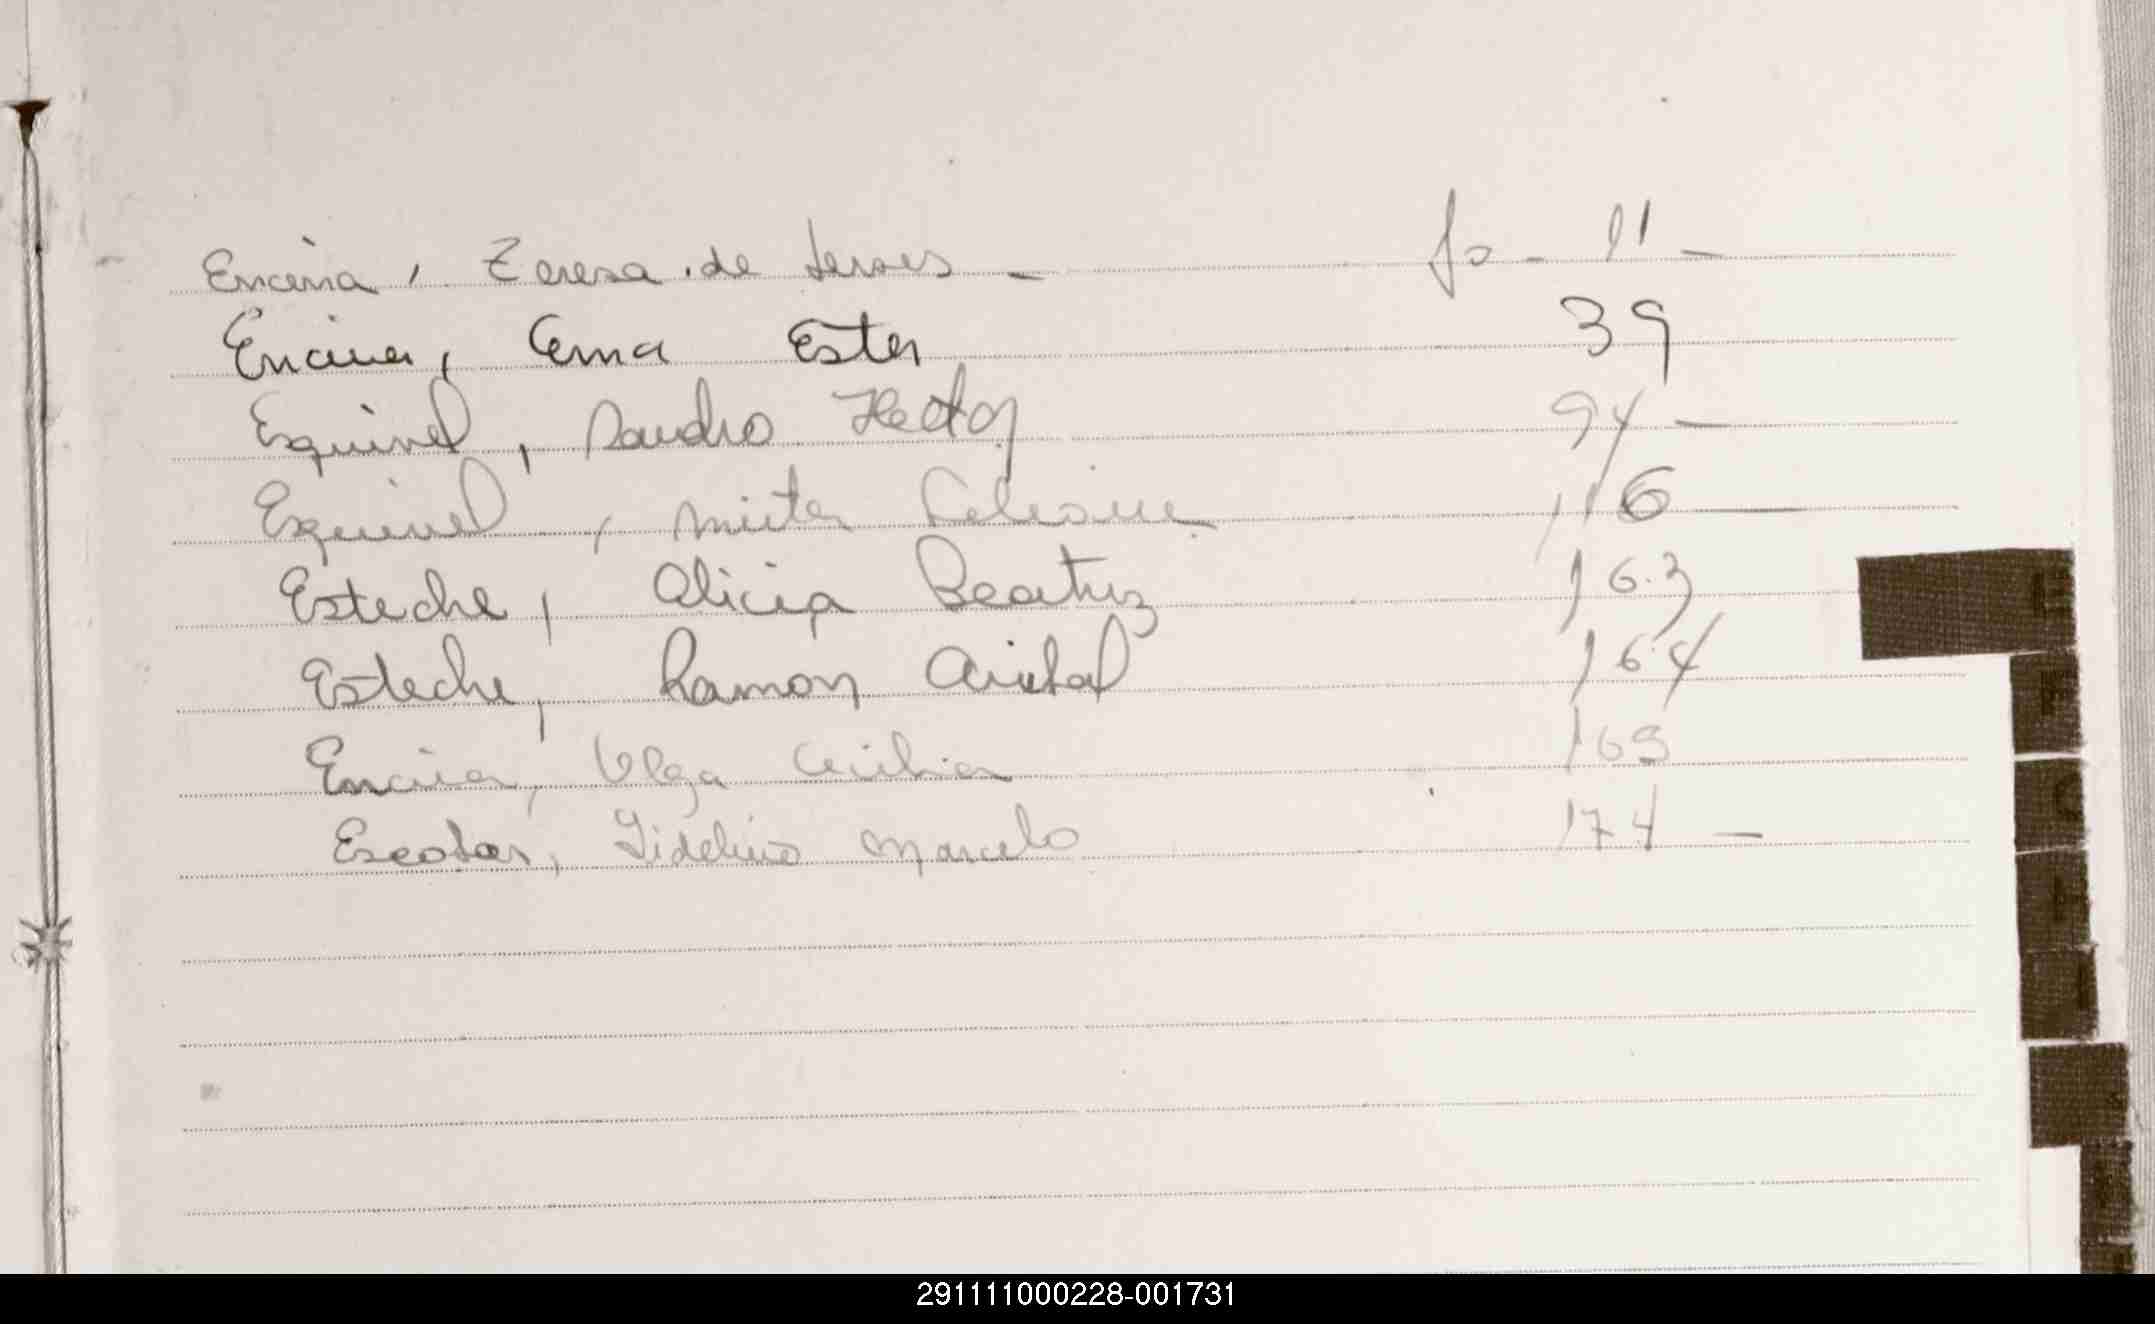 Encina, Teresa de Jesus - fo - 11 -
Encina, Ema Ester 39
Esquivel, Sandro Hector 94 -
Esquivel, Mirta 116 -
Esteche, Alicia Beatriz 163
Esteche, Ramon 164
Encina, Olga Cecilia 169
Escobar, Fidelino Marcelo 174 -
E
F
G
H
I
291111000228-001731